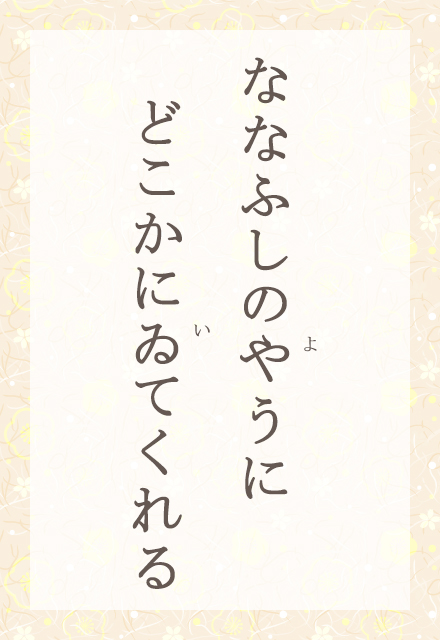 ななふしのやうに
よ
どこかにゐてくれる
い